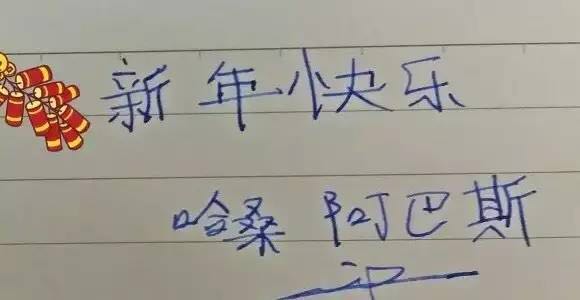 新年快乐
哈桑 阿巴斯